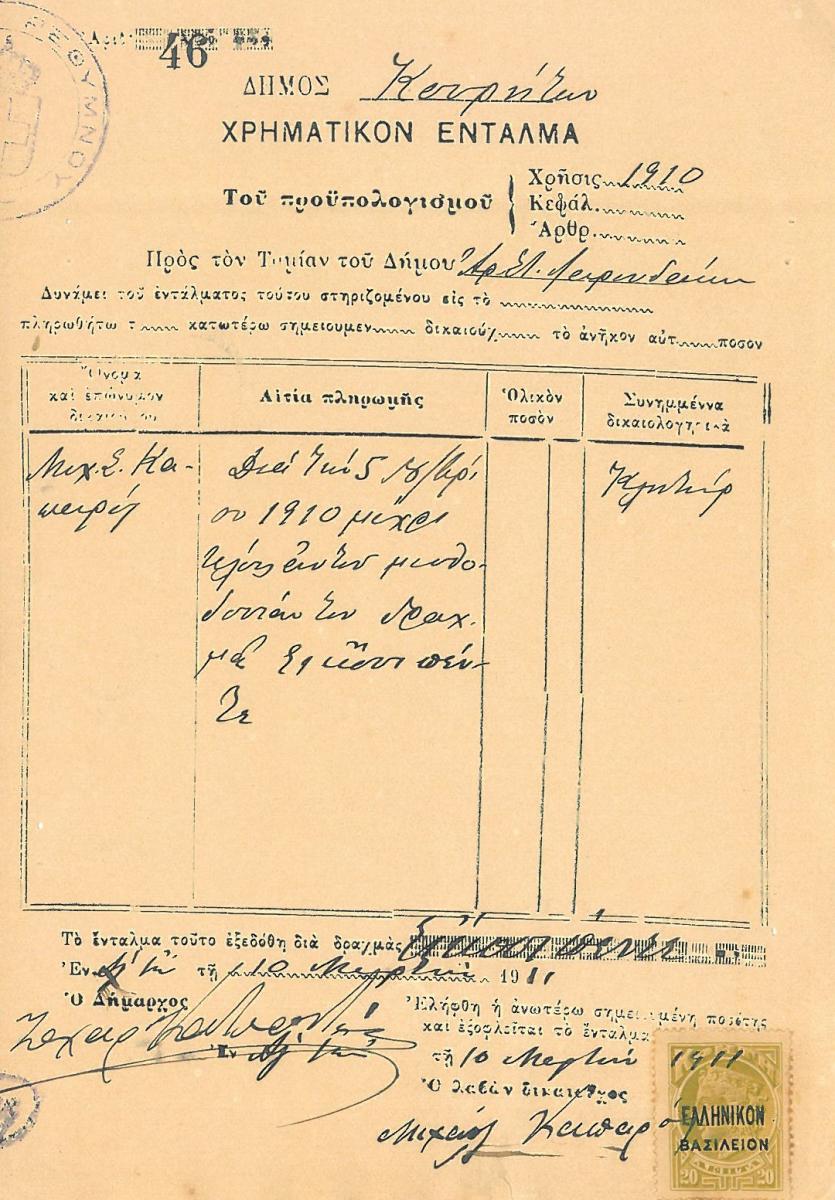 ΡΕΘΥΜΝΟΥ
Ἀριθ. 46
ΔΗΜΟΣ Κουρητῶν
ΧΡΗΜΑΤΙΚΟΝ ΕΝΤΑΛΜΑ
Τοῦ προϋπολογισμοῦ
Χρῆσις 1910
Κεφάλ.
Ἄρθρ.
Πρὸς τὸν Ταμίαν τοῦ Δήμου
Δυνάμει τοῦ ἐντάλματος τούτου στηριζομένου εἰς τὸ
πληρωθήτω τ κατωτέρω σημειουμεν δικαιούχ τὸ ἀνῆκον αὐτ ποσον
Ὄνομα
καὶ ἐπώνυμον
δικαιούχου
Αἰτία πληρωμῆς
Ὁλικὸν
ποσὸν
Συνημμέννα
δικαιολογητικὰ
Μιχ. Σ. Κα-
παρός
Διά τήν 5
ου 1910 μέχρι
τέλους μισθο-
δοσίαν του δραχ-
μάς εἴκοσι πέν-
τε
Τὸ ἔνταλμα τοῦτο ἐξεδόθη διὰ δραχμὰς εἴκοσι πέντε
Ἐν τῇ 10 Μαρτίου 1911
Ὁ Δήμαρχος
Ἐλήφθη ἡ ἀνωτέρω σημειωμένη ποσότης
καὶ ἐξοφλεῖται τὸ ἔνταλμα
Ἐν
τῇ 10 Μαρτίου 1911
Ὁ λαβὼν δικαιοῦχος
Μιχαήλ Καπαρός
ΕΛΛΗΝΙΚΟΝ
ΒΑΣΙΛΕΙΟΝ
20 ΛΕΠΤΑ 20